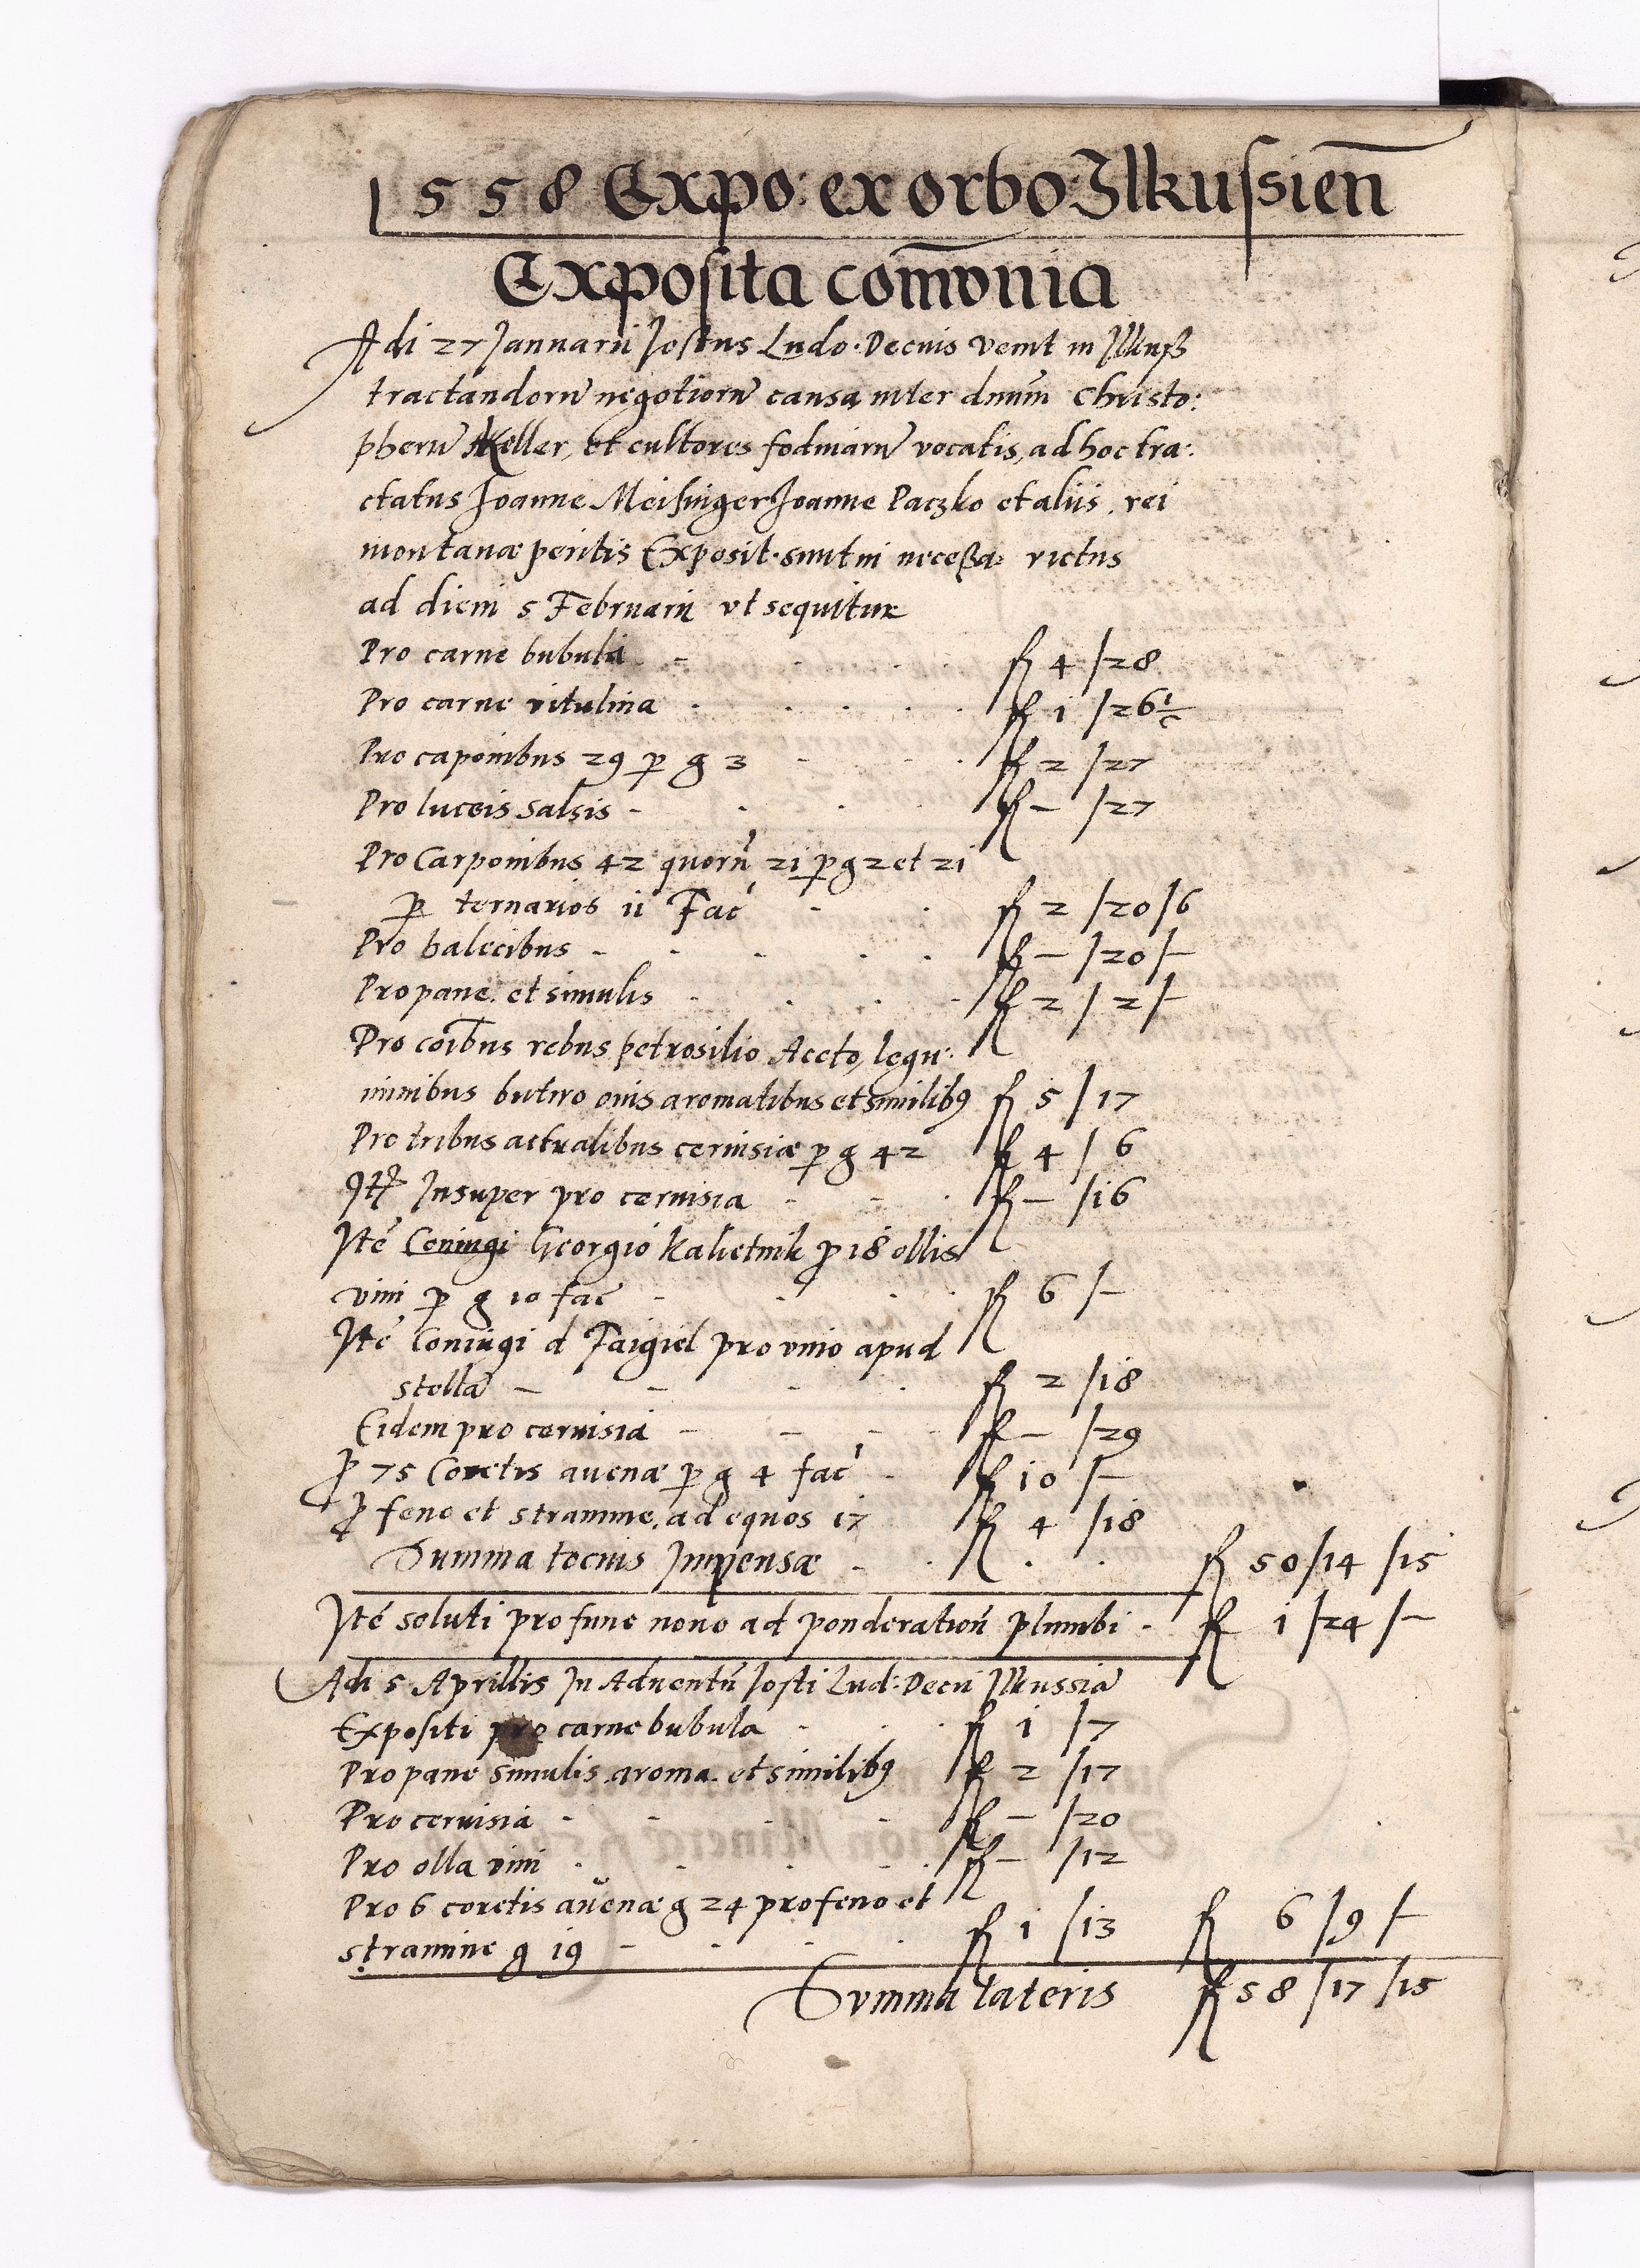 1558 Expo: ex orbo: Ilkussien̄
Exposita com̄vnia
Adi 27 Januarii Jostus Ludo. Decius venit in Ilkuß
tractandorū negotiorū causa inter dnūm Christo:
pherū Keller, et cultores fodinarū vocatis, ad hoc tra:
ctatus Joanne Meisinger Joanne Paczko et aliis rei
montanæ peritis Exposit. sunt in neceßa: victus
ad diem 5 Februarii vt sequitur
Pro carne bubula - fl 4 /28
Pro carne vitulina fl 1 /26 1/2
Pro caponibus 29 p g 3 fl 2 /27
Pro luceis salsis - fl - /27
Pro Carponibus 42 quorū 21 p g 2 et 21
p ternarios 11 Fac fl 2 /20/6
Pro halecibus - fl - /20/-
Pro pane et simulis fl 2 / 2/-
Pro cōibus rebus petrosilio Aceto, legu:
minibus butiro ouis aromatibus et similibꝯ fl 5 /17
Pro tribus actualibus ceruisiæ p g 42 fl 4 / 6
Insuper pro ceruisia fl - /16
Itē Coniugi Georgio Kalietnik p 18 ollis
vini p g 10 fac fl 6 /-
Itē Coniugi d Faigiel pro vino apud
stellā - fl 2 /18
Eidem pro ceruisia - fl - /29
p 75 Coretis auenæ p g 4 fac fl 10 /-
p feno et stramine, ad equos 17 fl 4 /18
Summa tocius Impensæ - fl 50/14 /15
Itē soluti pro fune nouo ad ponderationē plumbi - fl 1 /24 /-
Adi 5 Aprillis In Aduentū Josti Lud: Decii Ilkussiā
Expositi pro carne bubula fl 1 /7
Pro pane simulis aroma. et similibꝯ fl 2 /17
Pro ceruisia - fl - /20
Pro olla vini fl - /12
Pro 6 coretis auenæ g 24 pro feno et
stramine g 19 - fl 1 /13 fl 6 /9 /-
Summa lateris fl 58 /17 /15